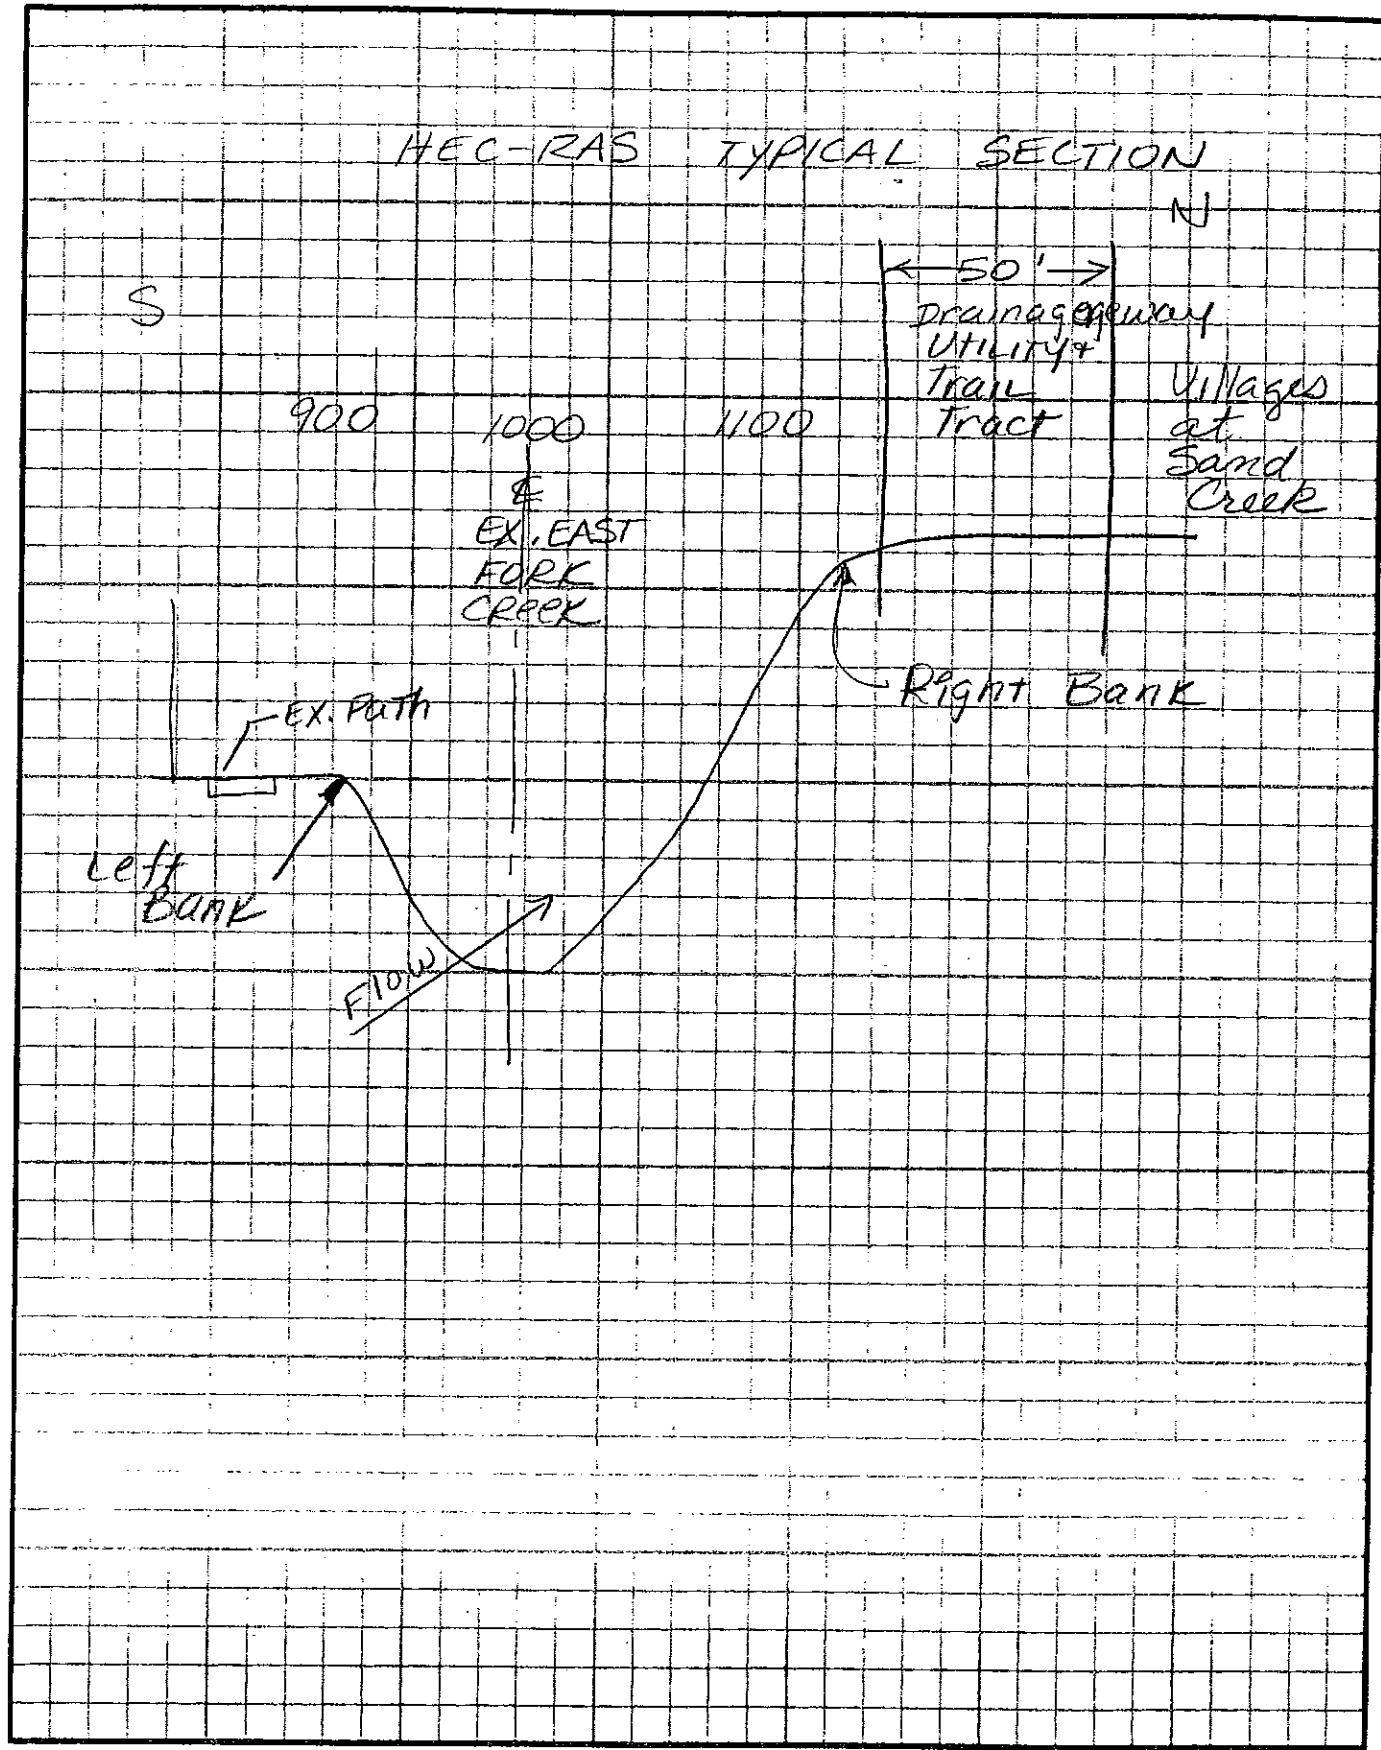 HEC-RAS TYPICAL SECTION
N
S
50'
Drainagegeway
Utility &
Trail
Tract
Villages
at
Sand
Creek
900 1000 1100
℄
EX. EAST
FORK
CREEK
Right Bank
EX. Path
Left
Bank
Flow